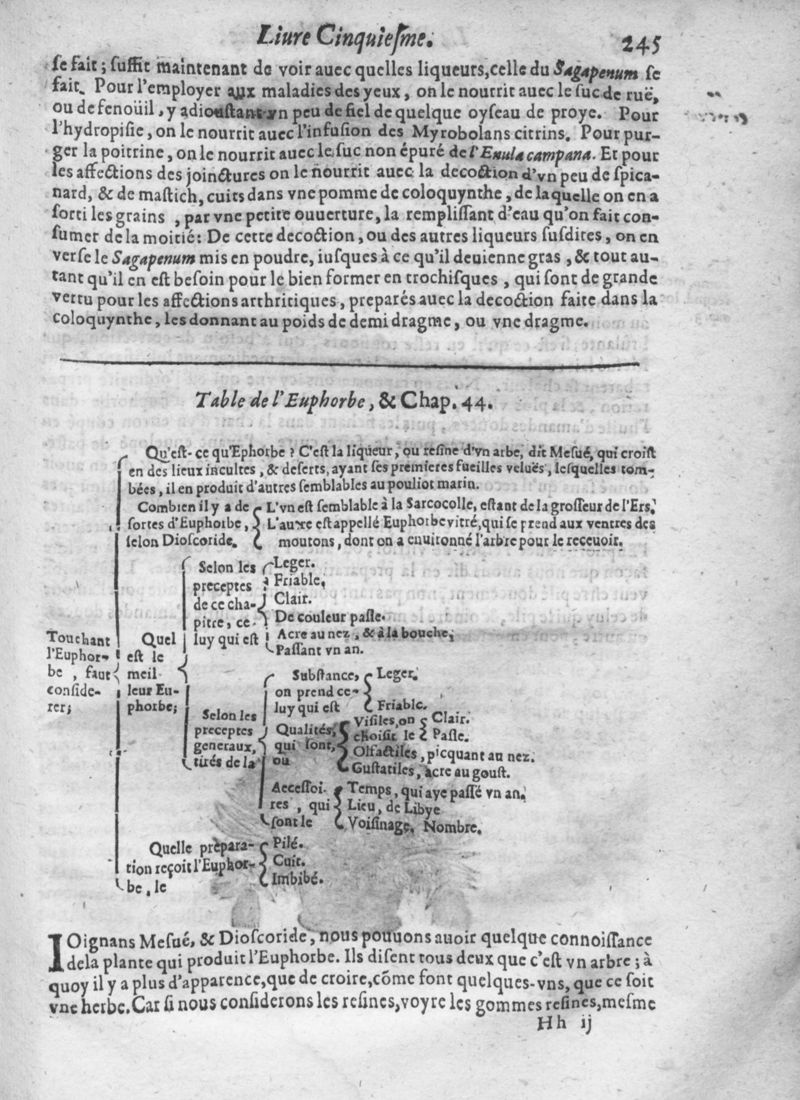 Liure Cinquieſme. 245
ſe fait ; ſuffit maintenant de voir auec quelles liqueurs, celle du Sagapenum ſe
fait. Pour l'employer aux maladies des yeux, on le nourrit auec le ſuc de ruë,
ou de fenoüil, y adiouſtant vn peu de fiel de quelque oyſeau de proye. Pour
l'hydropiſie, on le nourrit auec l'infuſion des Myrobolans citrins. Pour pur-
ger la poitrine, on le nourrit auec le ſuc non épuré de l'Enula campana. Et pour
les affections des joinctures on le nourrit auec la decoction d'vn peu de ſpica-
nard, & de maſtich, cuits dans vne pomme de coloquynthe, de laquelle on en a
ſorti les grains , par vne petite ouuerture, la rempliſſant d'eau qu'on fait con-
ſumer de la moitié: De cette decoction, ou des autres liqueurs ſuſdites, on en
verſe le Sagapenum mis en poudre, iuſques à ce qu'il deuienne gras , & tout au-
tant qu'il en eſt beſoin pour le bien former en trochiſques , qui ſont de grande
vertu pour les affections arthritiques , preparés auec la decoction faite dans la
coloquynthe, les donnant au poids de demi dragme, ou vne dragme.
Table de l'Euphorbe, & Chap. 44.
Touchant
l'Euphor-
be , faut
conſide-
rer;
Qu'eſt-ce qu'Ephorbe ? C'eſt la liqueur, ou reſine d'vn arbe, dit Meſué, qui croiſt
en des lieux incultes , & deſerts, ayant ſes premieres fueilles veluës, leſquelles tom-
bées, il en produit d'autres ſemblables au pouliot marin.
Combien il y a de
ſortes d'Euphorbe,
ſelon Dioſcoride.
L'vn eſt ſemblable à la Sarcocolle, eſtant de la groſſeur de l'Ers.
L'autre eſt appellé Euphorbe vitré, qui ſe prend aux ventres des
moutons, dont on a enuironné l'arbre pour le receuoir.
Quel
eſt le
meil
leur Eu-
phorbe;
Selon les
preceptes
de ce cha-
pitre, ce-
luy qui eſt
Leger.
Friable,
Clair.
De couleur paſle.
Acre au nez , & à la bouche,
Paſſant vn an.
Selon les
preceptes
generaux,
tirés de la
Subſtance,
on prend ce-
luy qui eſt
Leger.
Friable.
Qualités,
qui ſont,
ou
Viſiles, on
choiſit le
Clair.
Paſle.
Olfactiles , picquant au nez.
Guſtatiles, acre au gouſt.
Acceſſoi-
res , qui
ſont le
Temps, qui aye paſſé vn an.
Lieu, de Libye
Voiſinage, Nombre.
Quelle prepara-
tion reçoit l'Euphor-
be, le
Pilé.
Cuit.
Imbibé.
IOignans Meſué, & Dioſcoride, nous pouuons auoir quelque connoiſſance
dela plante qui produit l'Euphorbe. Ils diſent tous deux que c'eſt vn arbre ; à
quoy il y a plus d'apparence, que de croire, cõme font quelques-vns, que ce ſoit
vne herbe. Car ſi nous conſiderons les reſines, voyre les gommes reſines, meſme
Hh ij